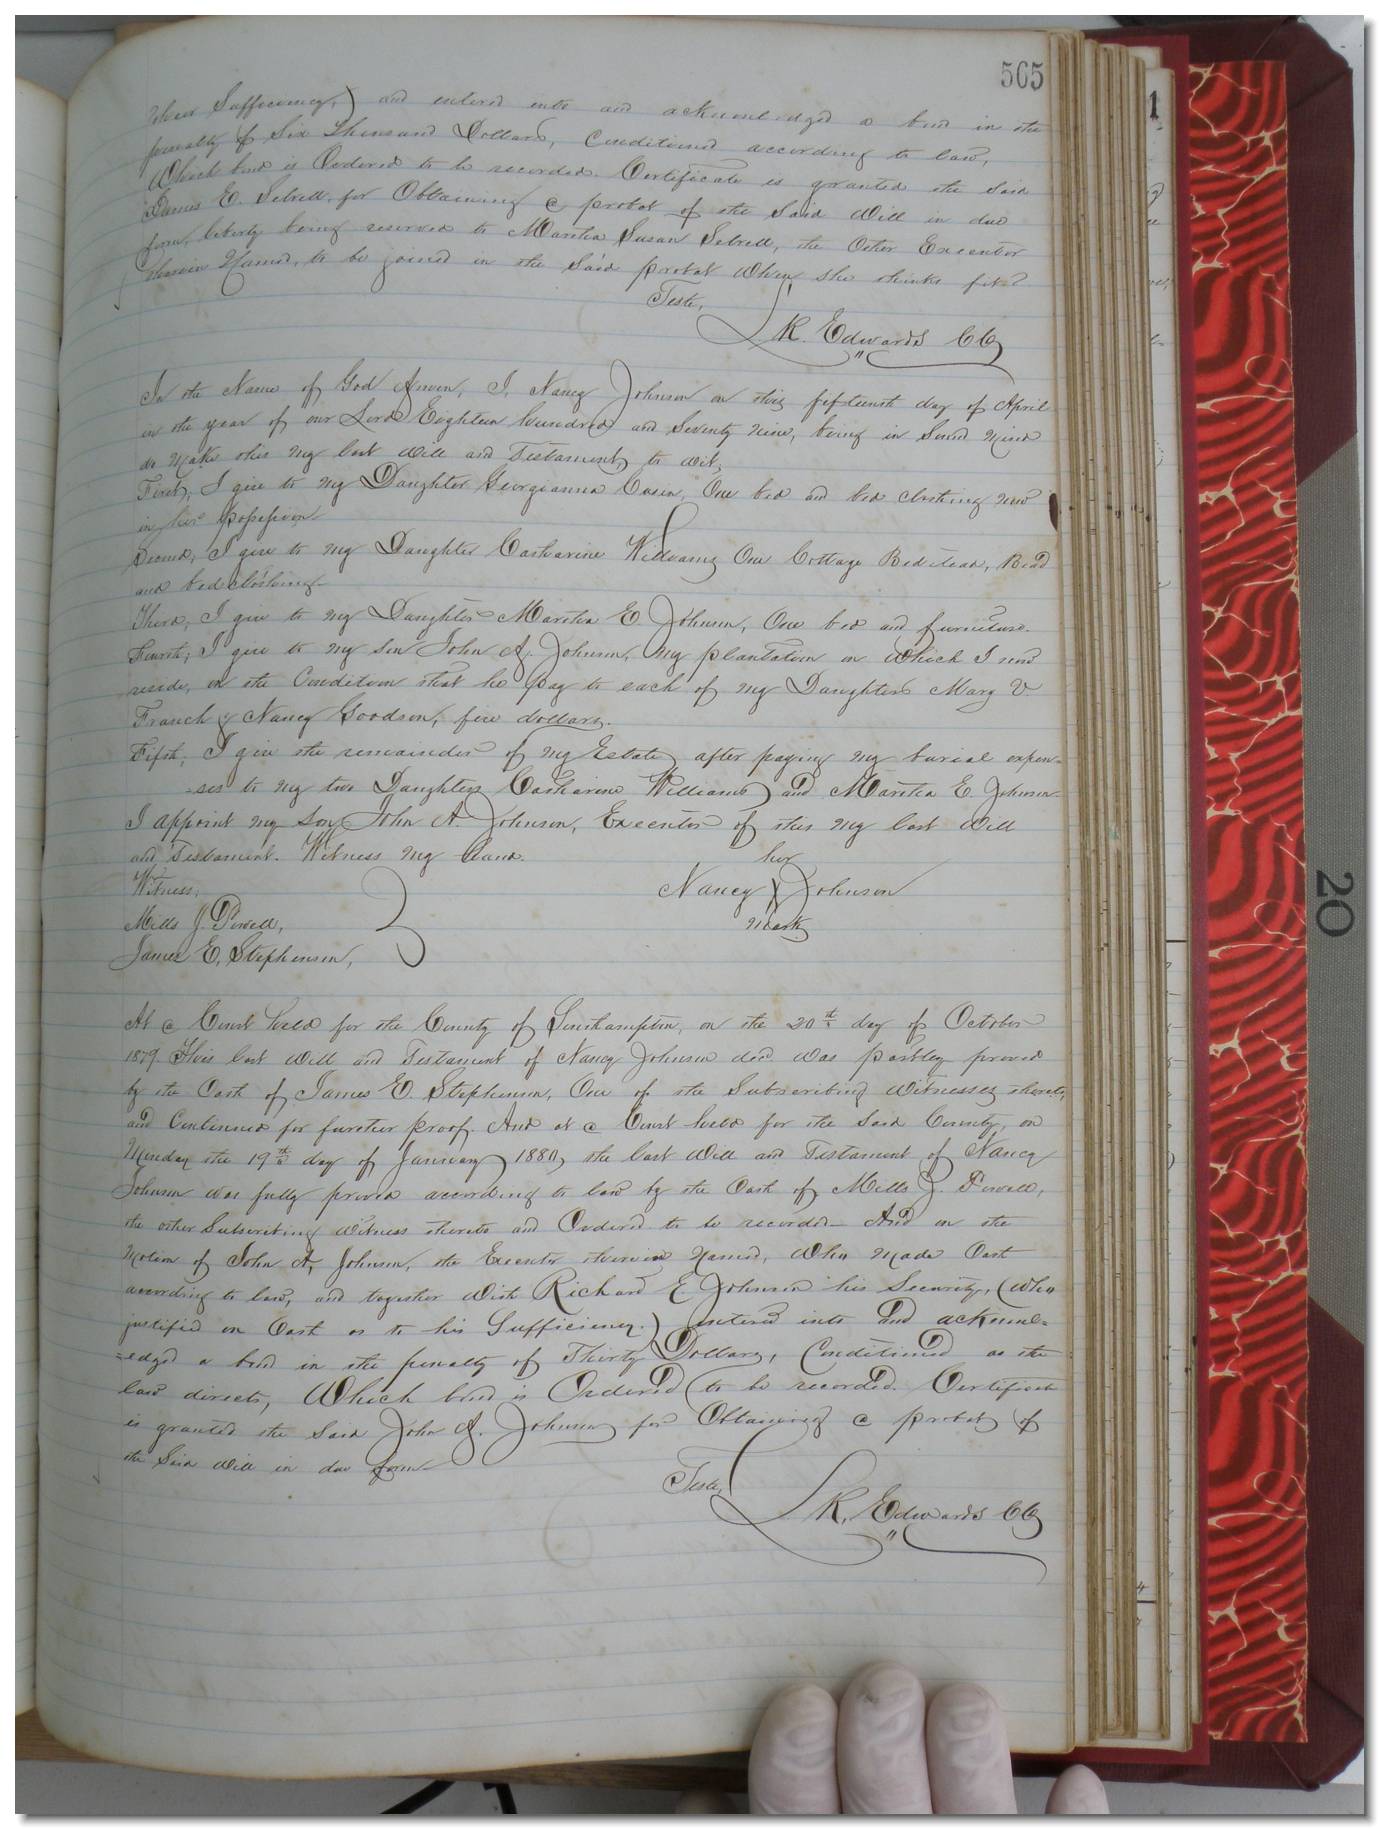 565
their Sufficiency,) and entered into and acknowledged a bond in the
penalty of Six Thousand Dollars, Conditioned according to law,
Which bond is Ordered to be recorded. Certificate is granted the said
James E. Sebrell, for Obtaining a probat of the Said Will in due
form, liberty being reserved to Martha Susan Sebrell, the Other Executor
therein Named, to be joined in the Said probat When she thinks fit.
Teste,
L. R. Edwards CC
In the Name of God Amen, I, Nancy Johnson on this fifteenth day of April
in the year of our Lord Eighteen hundred and Seventy Nine, being in Sound Mind
do Make this my last Will and Testament, to wit,
First; I give to my Daughter Georgianna, One bed and bed clothing now
in her possession
Second, I give to my Daughter Catharine Williams One Cottage Bedstead, Bed
and bed clothing
Third, I give to my Daughter Martha E Johnson, One bed and furniture.
Fourth; I give to my son John A. Johnson, my plantation on Which I now
reside, on the Condition that he pay to each of my Daughters Mary V
& Nancy Goodson, five dollars.
Fifth; I give the remainder of my Estate, after paying my burial expen-
-ses to my two Daughters Catharine Williams and Martha E. Johnson
I appoint my Son John A. Johnson, Executor of this my last Will
and Testament. Witness my hand.
her
Witness,
Nancy X Johnson
mark
Mills J. Powell,
James E. Stephenson,
At a Court held for the County of Southampton, on the 20th day of October
1879. This last Will and Testament of Nancy Johnson decd was partley proved
by the Oath of James E. Stephenson, One of the Subscribing Witnesses thereto,
and Continued for further proof. And at a Court held for the Said County, on
Monday the 19th day of January 1880, the last Will and Testament of Nancy
Johnson was fully proved according to law by the Oath of Mills J. Powell,
the other Subscribing Witness thereto and Ordered to be recorded - And on the
Motion of John A, Johnson, the Executor therein Named, Who made Oath
according to law, and together With Richard E. Johnson his Security, (Who
justified on Oath as to his Sufficiency.) entered into and acknowl=
=edged a bond in the penalty of Thirty Dollars, Conditioned as the
law directs, Which bond is Ordered to be recorded. Certificate
is granted the Said John A. Johnson for Obtaining a probat of
the Said Will in due form
Teste,
L. R. Edwards CC
1
20